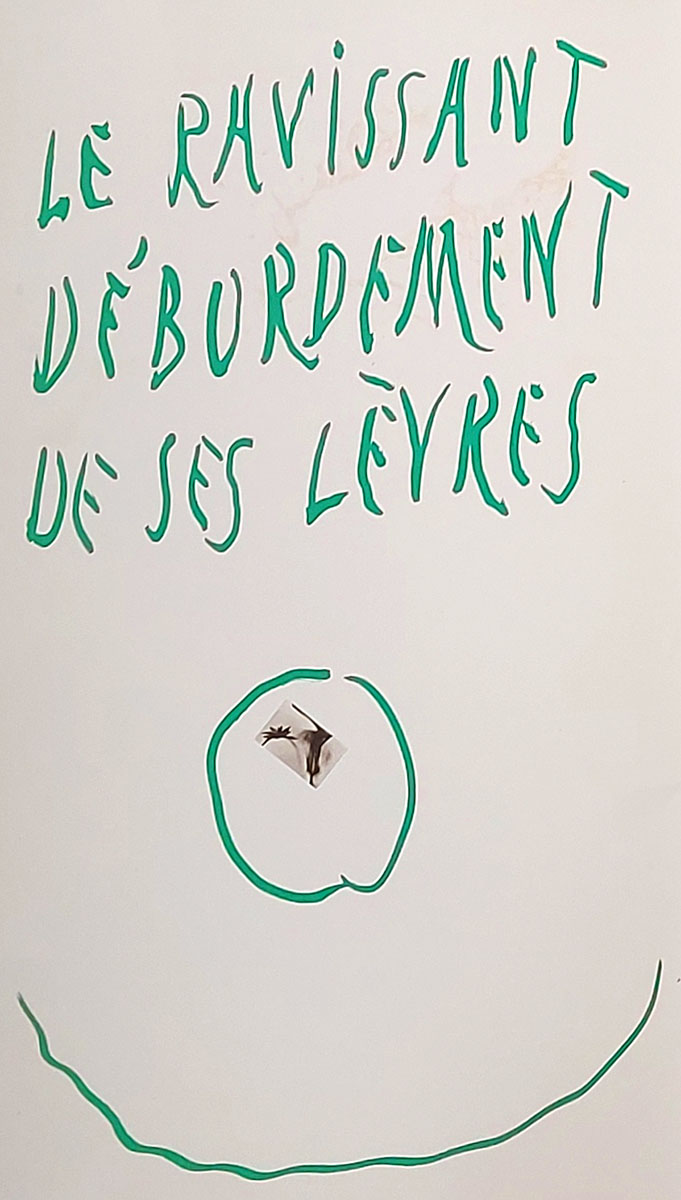 LE RAViSSANT
DÉBORDEMENT
DE SES LÈVRES